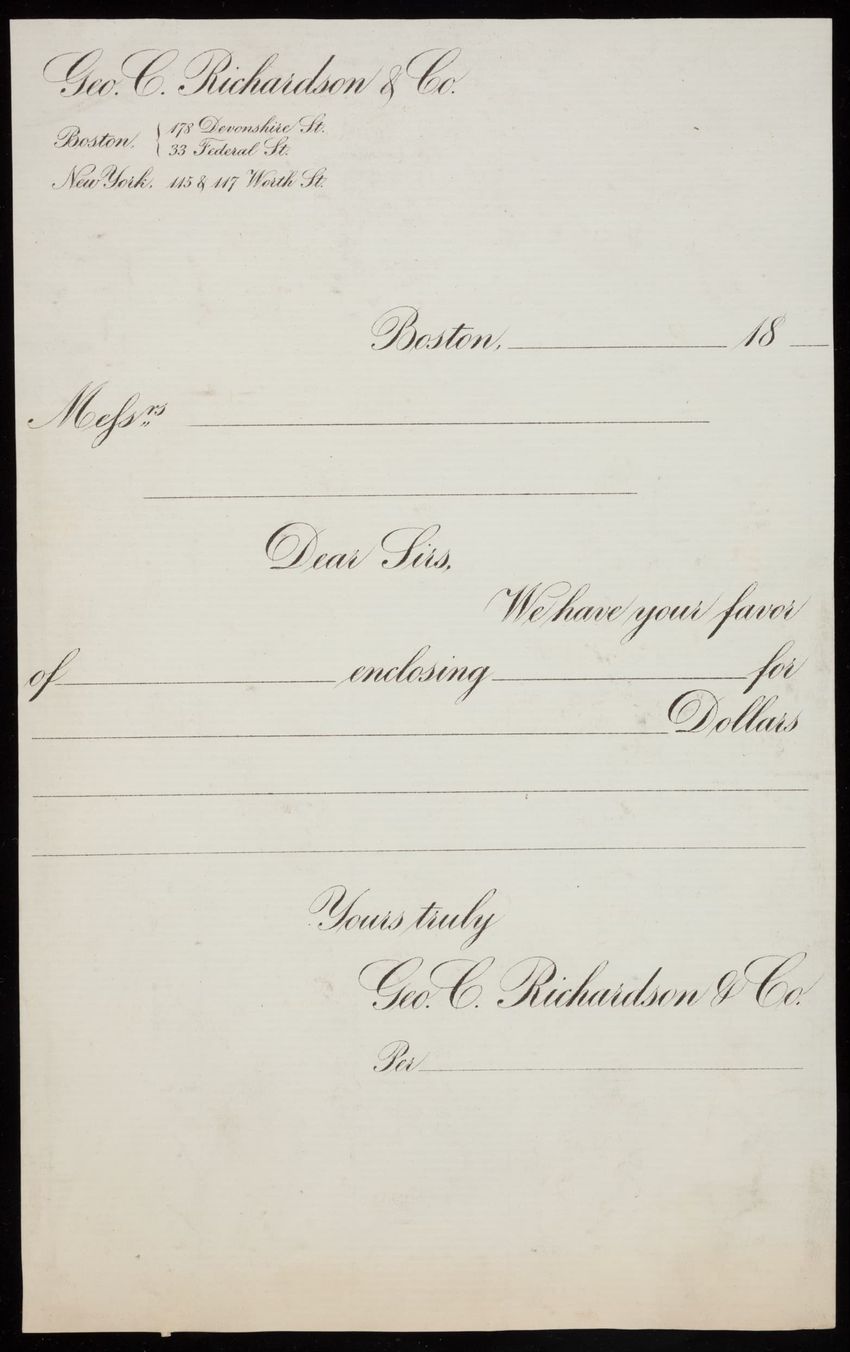 Geo. C. Richardson & Co.
Boston, { 178 Devonshire St.
33 Federal St.
New York, 115 & 117 Worth St.
Boston, 18
Messrs
Dear Sirs,
We have your favor
of enclosing for
Dollars
Yours truly
Geo. C. Richardson & Co.
Per